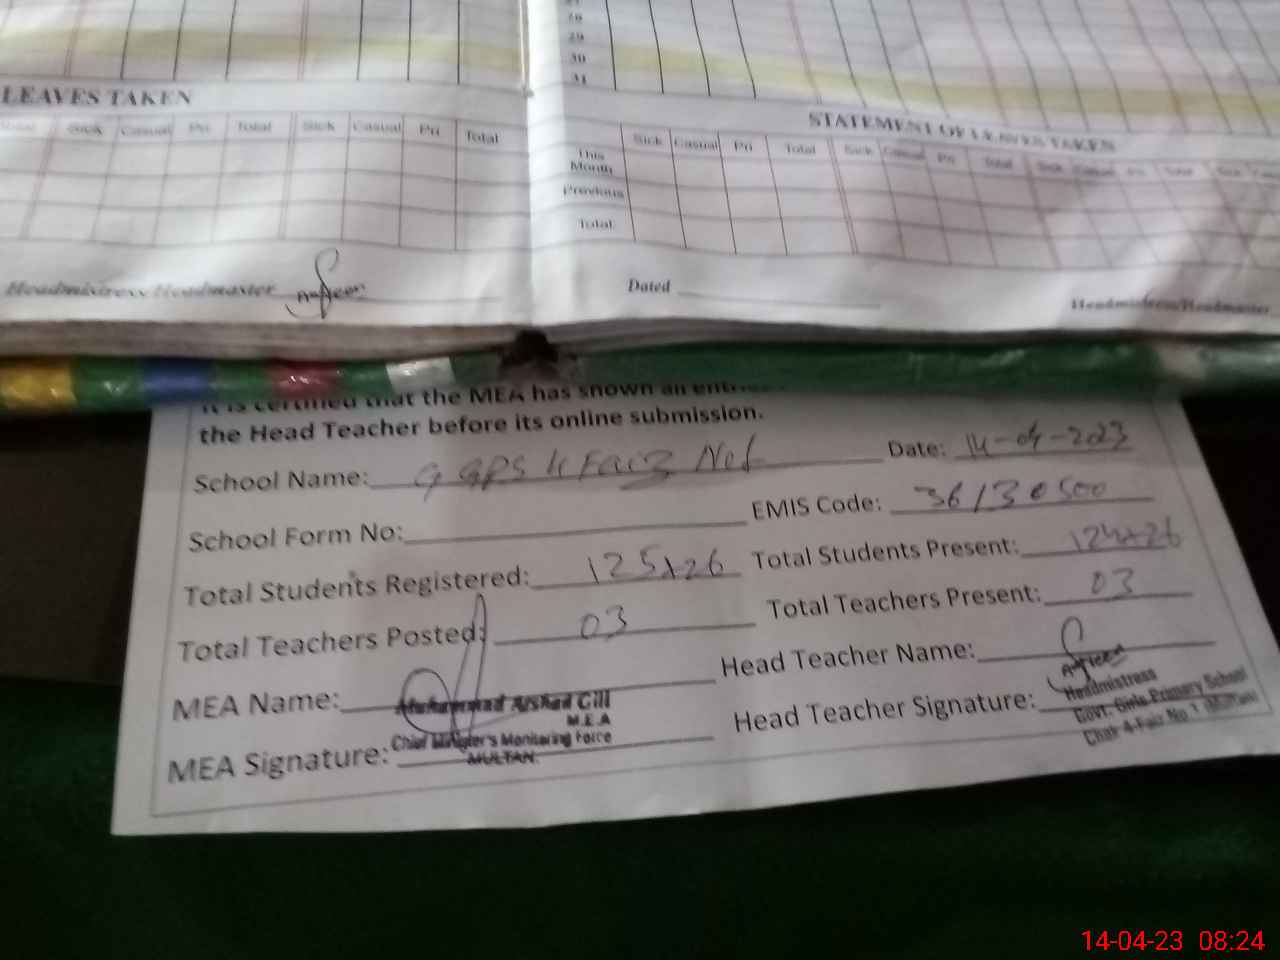 28
29
30
31
LEAVES TAKEN
Total Sick Casual Pri Total Sick Casual Pri Total
STATEMENT OF LEAVES TAKEN
Sick Casual Pri Total Sick Casual Pri Total Sick Casual Pri Total Sick
This Month
Previous
Total
Headmistress/Headmaster
Dated
Headmistress/Headmaster
It is certified that the MEA has shown all
the Head Teacher before its online submission.
School Name: G GPS 4 Faiz No1 Date: 14-04-2023
School Form No: EMIS Code: 36130500
Total Students Registered: 125+26 Total Students Present: 124+26
Total Teachers Posted: 03 Total Teachers Present: 03
MEA Name: Muhammad Arshad Gill Head Teacher Name:
M.E.A
MEA Signature: Chief Minister's Monitoring Force Head Teacher Signature: Headmistress
MULTAN. Govt. Girls Primary School
Chak 4-Faiz No 1
14-04-23 08:24